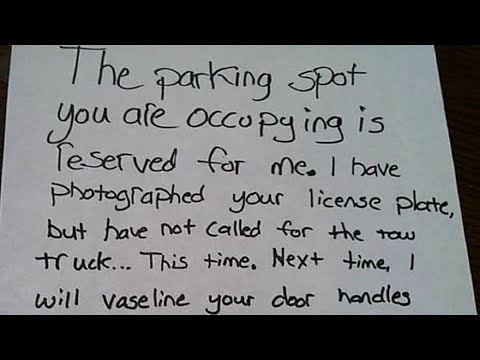 The parking spot
you are occupying is
reserved for me. I have
photographed your license plate,
but have not called for the tow
truck... This time. Next time, I
will vaseline your door handles